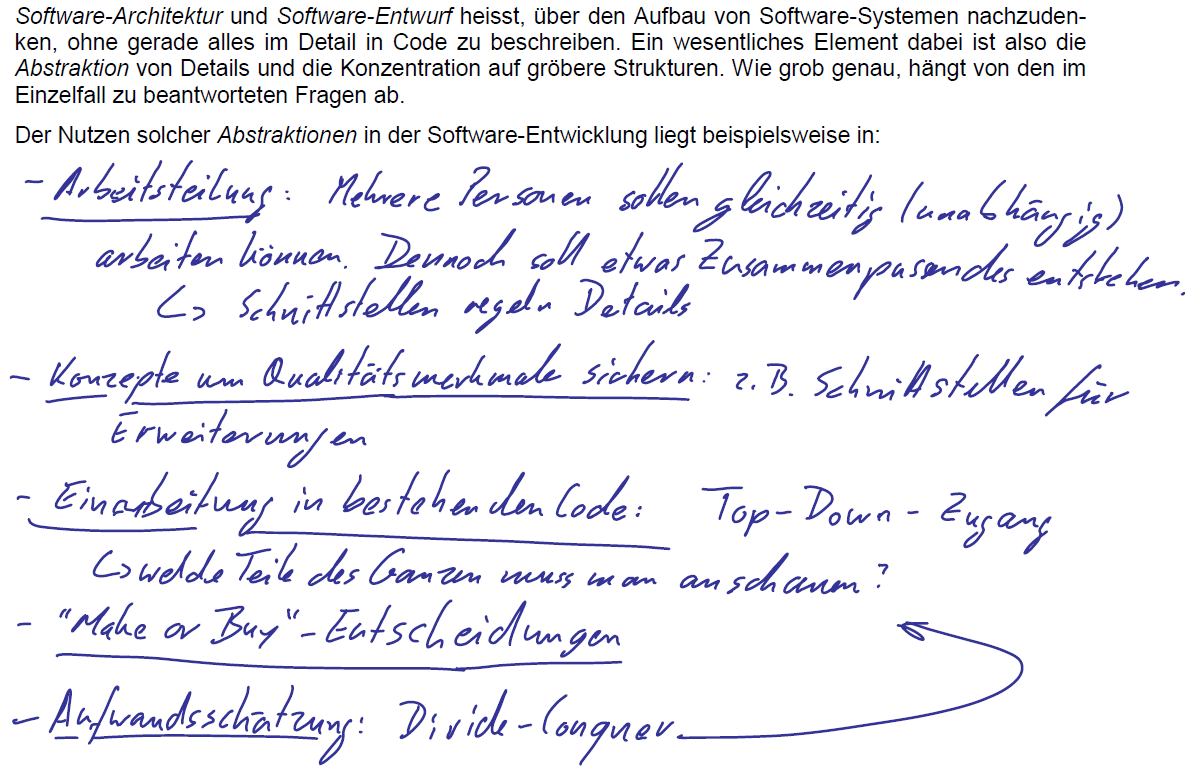 Software-Architektur und Software-Entwurf heisst, über den Aufbau von Software-Systemen nachzuden-
ken, ohne gerade alles im Detail in Code zu beschreiben. Ein wesentliches Element dabei ist also die
Abstraktion von Details und die Konzentration auf gröbere Strukturen. Wie grob genau, hängt von den im
Einzelfall zu beantworteten Fragen ab.
Der Nutzen solcher Abstraktionen in der Software-Entwicklung liegt beispielsweise in:
- Arbeitsteilung: Mehrere Personen sollen gleichzeitig (unabhängig)
arbeiten können. Dennoch soll etwas Zusammenpassendes entstehen.
↳ Schnittstellen regeln Details
- Konzepte um Qualitätsmerkmale sichern: z.B. Schnittstellen für
Erweiterungen
- Einarbeitung in bestehenden Code: Top-Down-Zugang
↳ welche Teile des Ganzen muss man anschauen?
- "Make or Buy"-Entscheidungen
- Aufwandsschätzung: Divide-Conquer